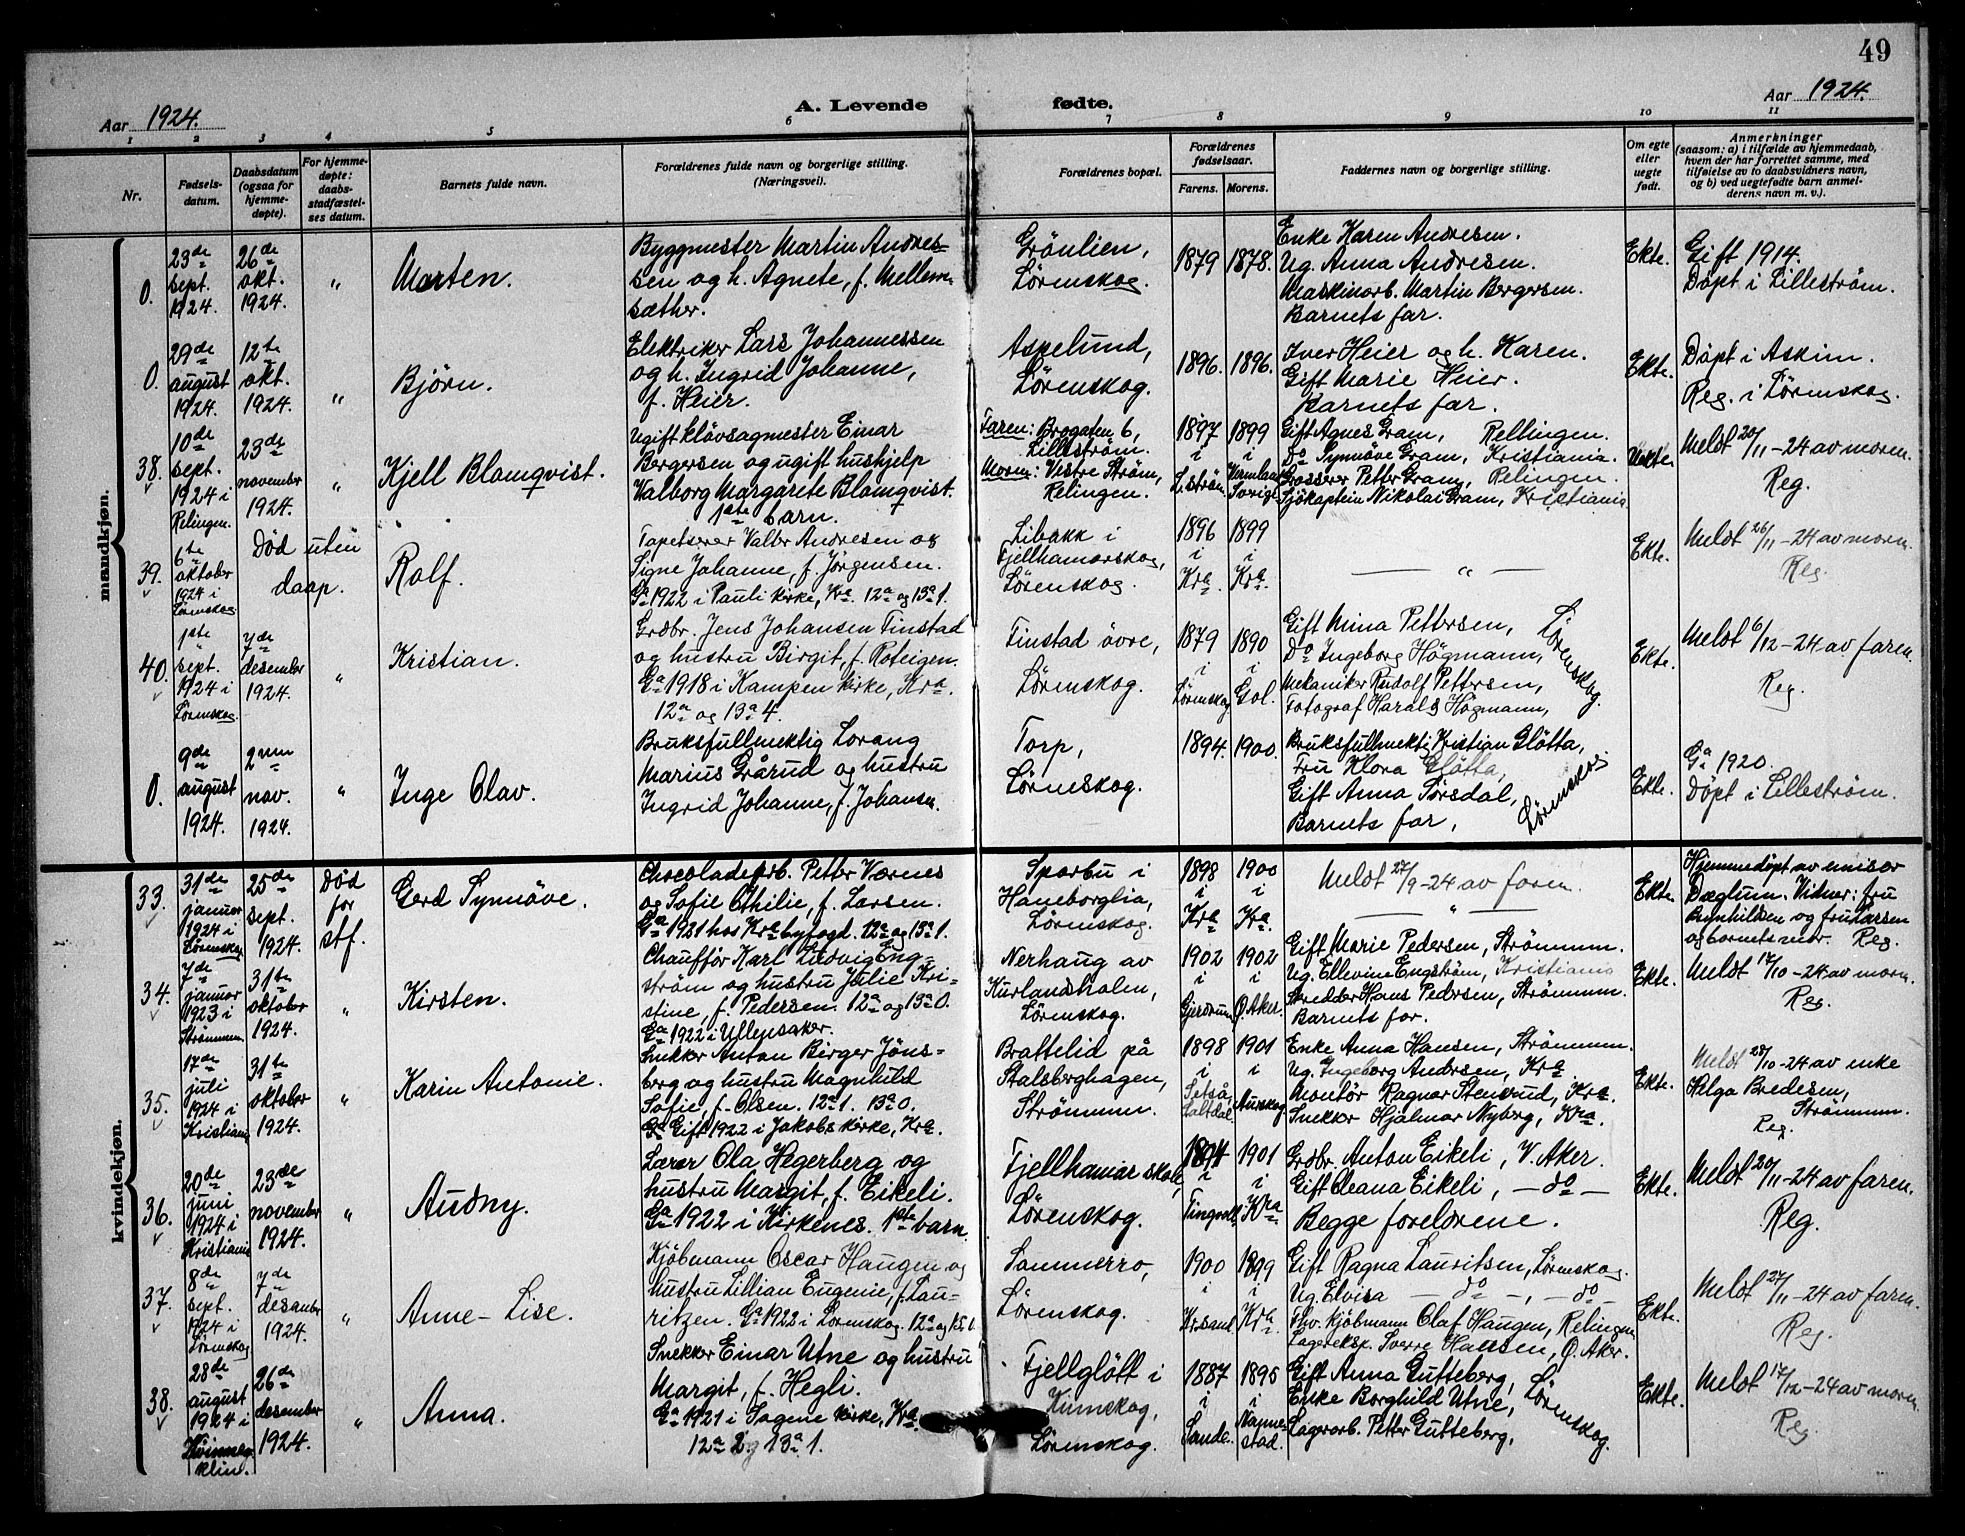 49
Aar 1924.
A. Levende fødte.
Aar 1924.
1 2 3 4 5 6 7 8 9 10 11
Nr.
Fødsels-
datum.
Daabsdatum
(ogsaa for
hjemme-
døpte).
For hjemme-
døpte:
daabs-
stadfæstel-
ses datum.
Barnets fulde navn.
Forældrenes fulde navn og borgerlige stilling.
(Næringsvei).
Forældrenes bopæl.
Forældrenes
fødselsaar.
Farens. Morens.
Faddernes navn og borgerlige stilling.
Om egte
eller
uegte
født.
Anmerkninger
(saasom: a) i tilfælde av hjemmedaab,
hvem der har forrettet samme, med
tilføielse av to daabsvidners navn,
og b) ved uegtefødte barn anmel-
derens navn m. v.).
mandkjøn.
0.
23de
sept.
1924.
26de
okt.
1924.
"
Marten.
Byggmester Martin Andres-
sen og h. Agnete, f. Mellem-
sæther.
Grönlien,
Lørenskog.
1879 1878.
Enke Karen Andresen.
Ug. Anna Andresen.
Maskinarb. Martin Bergersen.
Barnets far.
Ekte.
Gift 1914.
Döpt i Lilleström.
0.
29de
august
1924.
12te
okt.
1924.
"
Bjørn.
Elektriker Lars Johannessen
og h. Ingrid Johanne,
f. Heier.
Aspelund,
Lørenskog.
1896. 1896.
Iver Heier og h. Karen.
Gift Marie Heier.
Barnets far.
Ekte.
Döpt i Askim.
Reg. i Lørenskog.
38.
10de
sept.
1924 i
Relingen.
23de
november
1924.
"
Kjell Blomqvist.
Ugift kløvsagmester Einar
Bergersen og ugift hushjelp
Valborg Margarete Blomqvist.
1ste barn.
Faren: Brogaten 6,
Lilleström.
Moren: Vestre Ström,
Relingen.
1897 i L.ström
1899 i
Gift Agnes Gram, Rellingen.
do Synnöve Gram, Kristiania.
Grosserer Petter Gram, Relingen.
Sjökaptein Nikolai Gram, Kristiania.
Uekte.
Meldt 20/11-24 av moren.
Reg.
39.
6te
oktober
1924 i
Lørenskog
Död uten
daap.
Rolf.
Tapetserer Valter Andresen og
Signe Johanne, f. Jørgensen.
Ga 1922 i Pauli kirke, Kra. 12a og 13a 1.
Libakk i
Fjellhamarskog,
Lørenskog.
1896 i Kra.
1899 i Kra.
— " —
Ekte.
Meldt 26/11-24 av moren.
Reg.
40.
1ste
sept.
1924 i
Lørenskog.
7de
desember
1924.
"
Kristian.
Grdbr. Jens Johansen Finstad
og hustru Birgit, f. Roteigen.
Ga 1918 i Kampen kirke, Kra.
12a og 13a 4.
Finstad övre,
Lørenskog.
1879 i Lørenskog
1890 i Gol.
Gift Mina Pettersen,
Do Ingeborg Högmann,
Mekaniker Rudolf Pettersen,
Fotograf Harald Högmann,
Lørenskog.
Ekte.
Meldt 6/12-24 av faren.
Reg.
0.
9de
august
1924.
2nen
nov.
1924.
"
Inge Olav.
Bruksfullmektig Lorang
Marius Grårud og hustru
Ingrid Johanne, f. Johansen.
Torp,
Lørenskog.
1894. 1900.
Bruksfullmektig Kristian Glötta,
Fru Klara Glötta,
Gift Anna Sörsdal,
Barnets far,
Lørenskog
Ekte.
Ga 1920.
Döpt i Lilleström.
kvindekjøn.
33.
31de
januar
1924 i
Lørenskog
25de
sept.
1924.
Död
før
stf.
Gerd Synnöve.
Chocoladearb. Petter Værnes
og Sofie Othilie, f. Larsen.
Ga 1921 hos Kra byfogd. 12a og 13a 1.
Sparbu i
Haneborglia,
Lørenskog.
1898 i Kra
1900 i Kra.
Meldt 27/9-24 av faren.
— " —
Ekte.
Hjemmedöpt av emisær
Dæglum. Vidner: fru
Brynhildsen og fru Larsen
og barnets mor. Reg.
34.
7de
januar
1923 i
Strömmen
31te
oktober
1924.
"
Kirsten.
Chauffør Karl Ludvig Eng-
ström og hustru Julie Kri-
stine, f. Pedersen. 12a og 13a 0.
Ga 1922 i Ullensaker.
Nerhaug av
Kurlandsdalen,
Lørenskog.
1902 i Gjerdrum
1902 i Ö. Aker.
Gift Marie Pedersen, Strömmen.
Ug. Ellevine Engström, Kristiania
Skredder Hans Pedersen, Strömmen.
Barnets far.
Ekte.
Meldt 17/10-24 av moren.
Reg.
35.
17de
juli
1924 i
Kristiania
31te
oktober
1924.
"
Karin Antonie.
Snekker Anton Birger Jöns-
berg og hustru Magnhild
Sofie, f. Olsen. 12a 1. 13a 0.
Ga Gift 1922 i Jakobs kirke, Kra.
Brattelid på
Stalsberghagen,
Strömmen.
1898 i Saltdal
1901 i Aurskog
Enke Anna Hansen, Strömmen.
Ug. Ingeborg Andersen, Kra.
Montör Ragnar Stensrud, Kra.
Snekker Hjalmar Nyberg, Kra.
Ekte.
Meldt 28/10-24 av enke
Helga Bredesen,
Strömmen.
Reg.
36.
20de
juni
1924 i
Kristiania
23de
november
1924.
"
Audny.
Lærer Ola Hegerberg og
hustru Margit, f. Eikeli.
Ga 1922 i Kirkenes. 1ste barn.
Fjellhamar skole,
Lørenskog.
1894 i Tingvoll
1901 i Kra.
Grdbr. Anton Eikeli, V. Aker.
Gift Oleana Eikeli, — do —
Begge forelærene.
Ekte.
Meldt 20/11-24 av faren.
Reg.
37.
8de
sept.
1924 i
Lørenskog
7de
desember
1924.
"
Anne-Lise.
Kjöbmann Oscar Haugen og
hustru Lillian Eugenie, f. Lau-
ritzen. Ga 1922 i Lørenskog. 12a og 13a 0.
Sommerro,
Lørenskog.
1900 i Kr.sand
1899 i Kra.
Gift Ragna Lauritsen, Lørenskog.
Ug. Elvisa — do —, — do —
Fhv. kjöbmann Olaf Haugen, Relingen
Lagereksp. Sverre Hansen, Ö. Aker.
Ekte.
Meldt 27/11-24 av faren.
Reg.
38.
28de
august
1924 i
Kvinne-
klin.
26de
desember
1924.
"
Anna.
Snekker Einar Utne og hustru
Margit, f. Hegli.
Ga 1921 i Sagene kirke, Kra.
12a 2 og 13a 1.
Fjellglött i
Kinnskog,
Lørenskog.
1887 i Sande.
1895 i Nannestad.
Gift Anna Gutteberg,
Enke Borghild Utne,
Lagerarb. Petter Gutteberg,
Lørenskog.
Ekte.
Meldt 17/12-24 av moren
Reg.